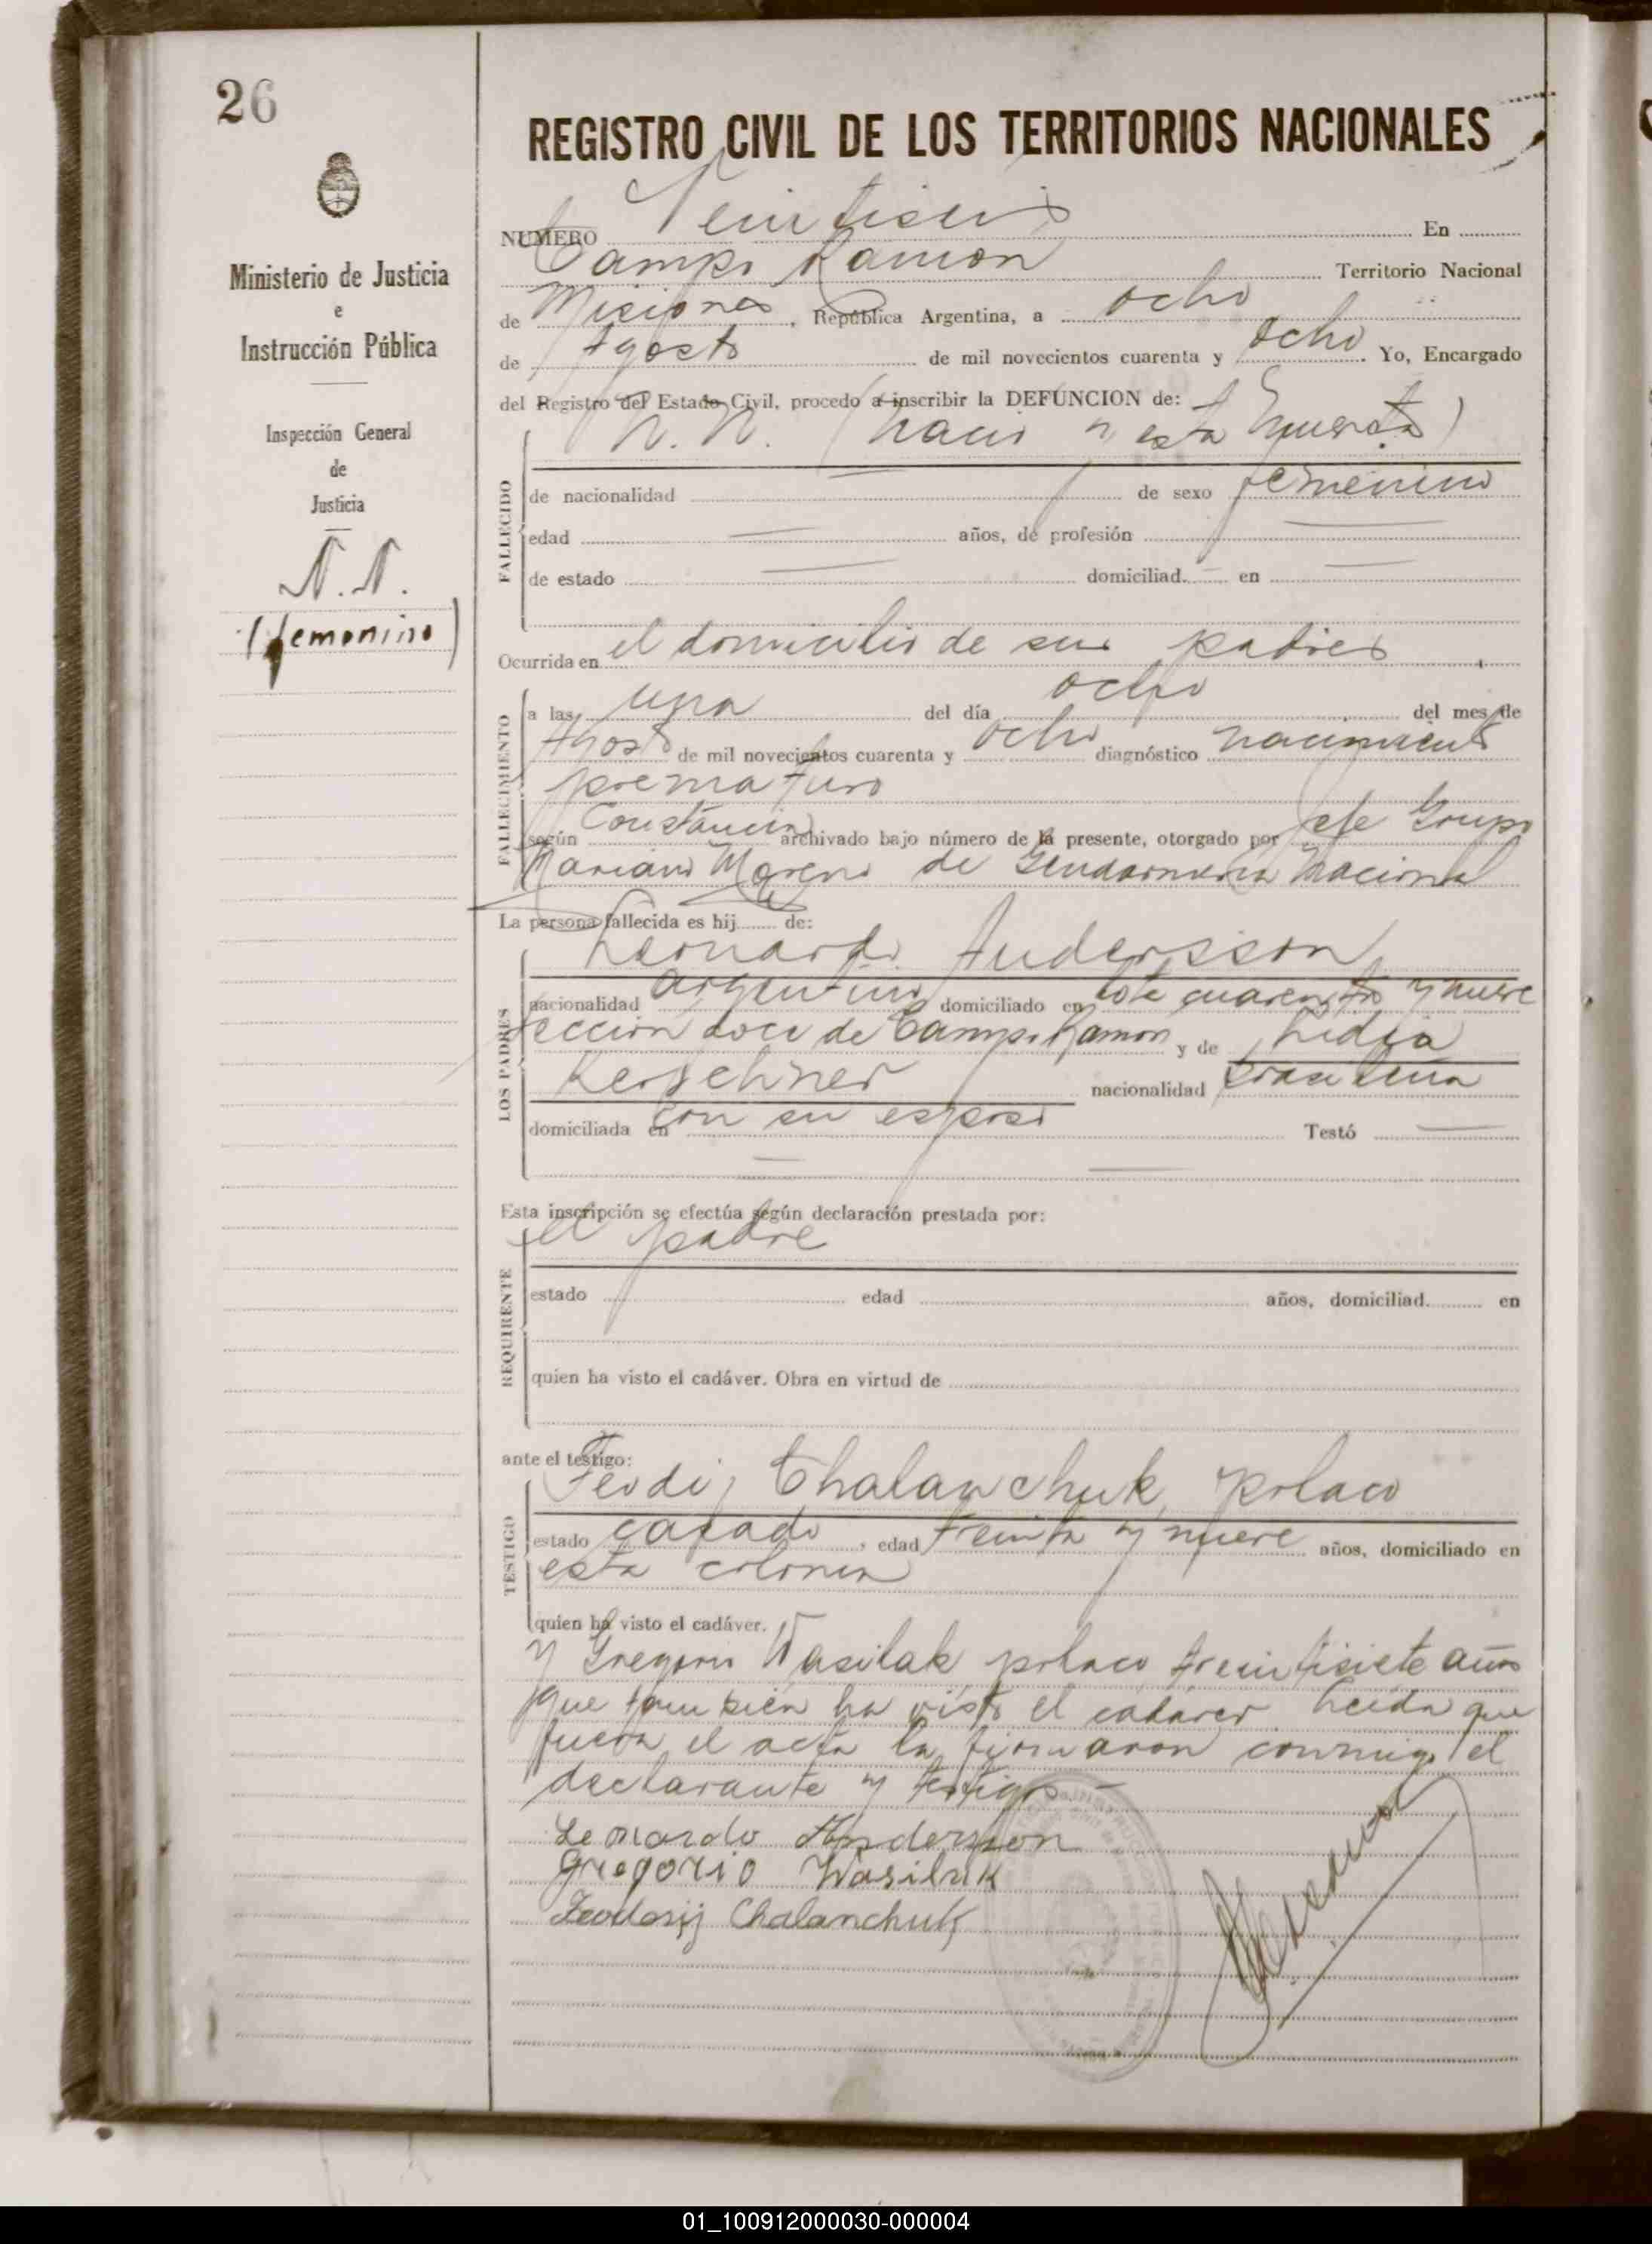 26
REGISTRO CIVIL DE LOS TERRITORIOS NACIONALES
Ministerio de Justicia
e
Instrucción Pública
Inspección General
de
Justicia
N. N.
(femenino)
NUMERO Veintiseis En
Campo Ramon Territorio Nacional
de Misiones, República Argentina, a ocho
de Agosto de mil novecientos cuarenta y ocho Yo, Encargado
del Registro del Estado Civil, procedo a inscribir la DEFUNCION de:
N. N. (nacio y esta muerta)
FALLECIDO
de nacionalidad — de sexo femenino
edad — años, de profesión —
de estado — domiciliad — en —
Ocurrida en el domicilio de sus padres
FALLECIMIENTO
a las una del día ocho del mes de
Agosto de mil novecientos cuarenta y ocho diagnóstico nacimiento
prematuro
según Constancia archivado bajo número de la presente, otorgado por Jefe Grupo
Mariano Moreno de Gendarmeria Nacional
La persona fallecida es hij de:
LOS PADRES
Leonardo Andersson
nacionalidad argentino domiciliado en lote cuarenta y nueve
seccion doce de Campo Ramon y de Lidia
Kerschner nacionalidad brasilena
domiciliada en con su esposo Testó —
— —
Esta inscripción se efectúa según declaración prestada por:
REQUIRENTE
el padre
estado edad años, domiciliad en
quien ha visto el cadáver. Obra en virtud de
ante el testigo:
TESTIGO
Feodij Chalanchuk, polaco
estado casado, edad treinta y nueve años, domiciliado en
esta colonia
quien ha visto el cadáver.
y Gregorio Wasilak polaco treintisiete años
que tambien ha visto el cadaver. Leida que
fuera el acta la firmaron conmigo el
declarante y testigos —
Leonardo Andersson
Gregorio Wasiluk
Feodosij Chalanchuk
01_100912000030-000004